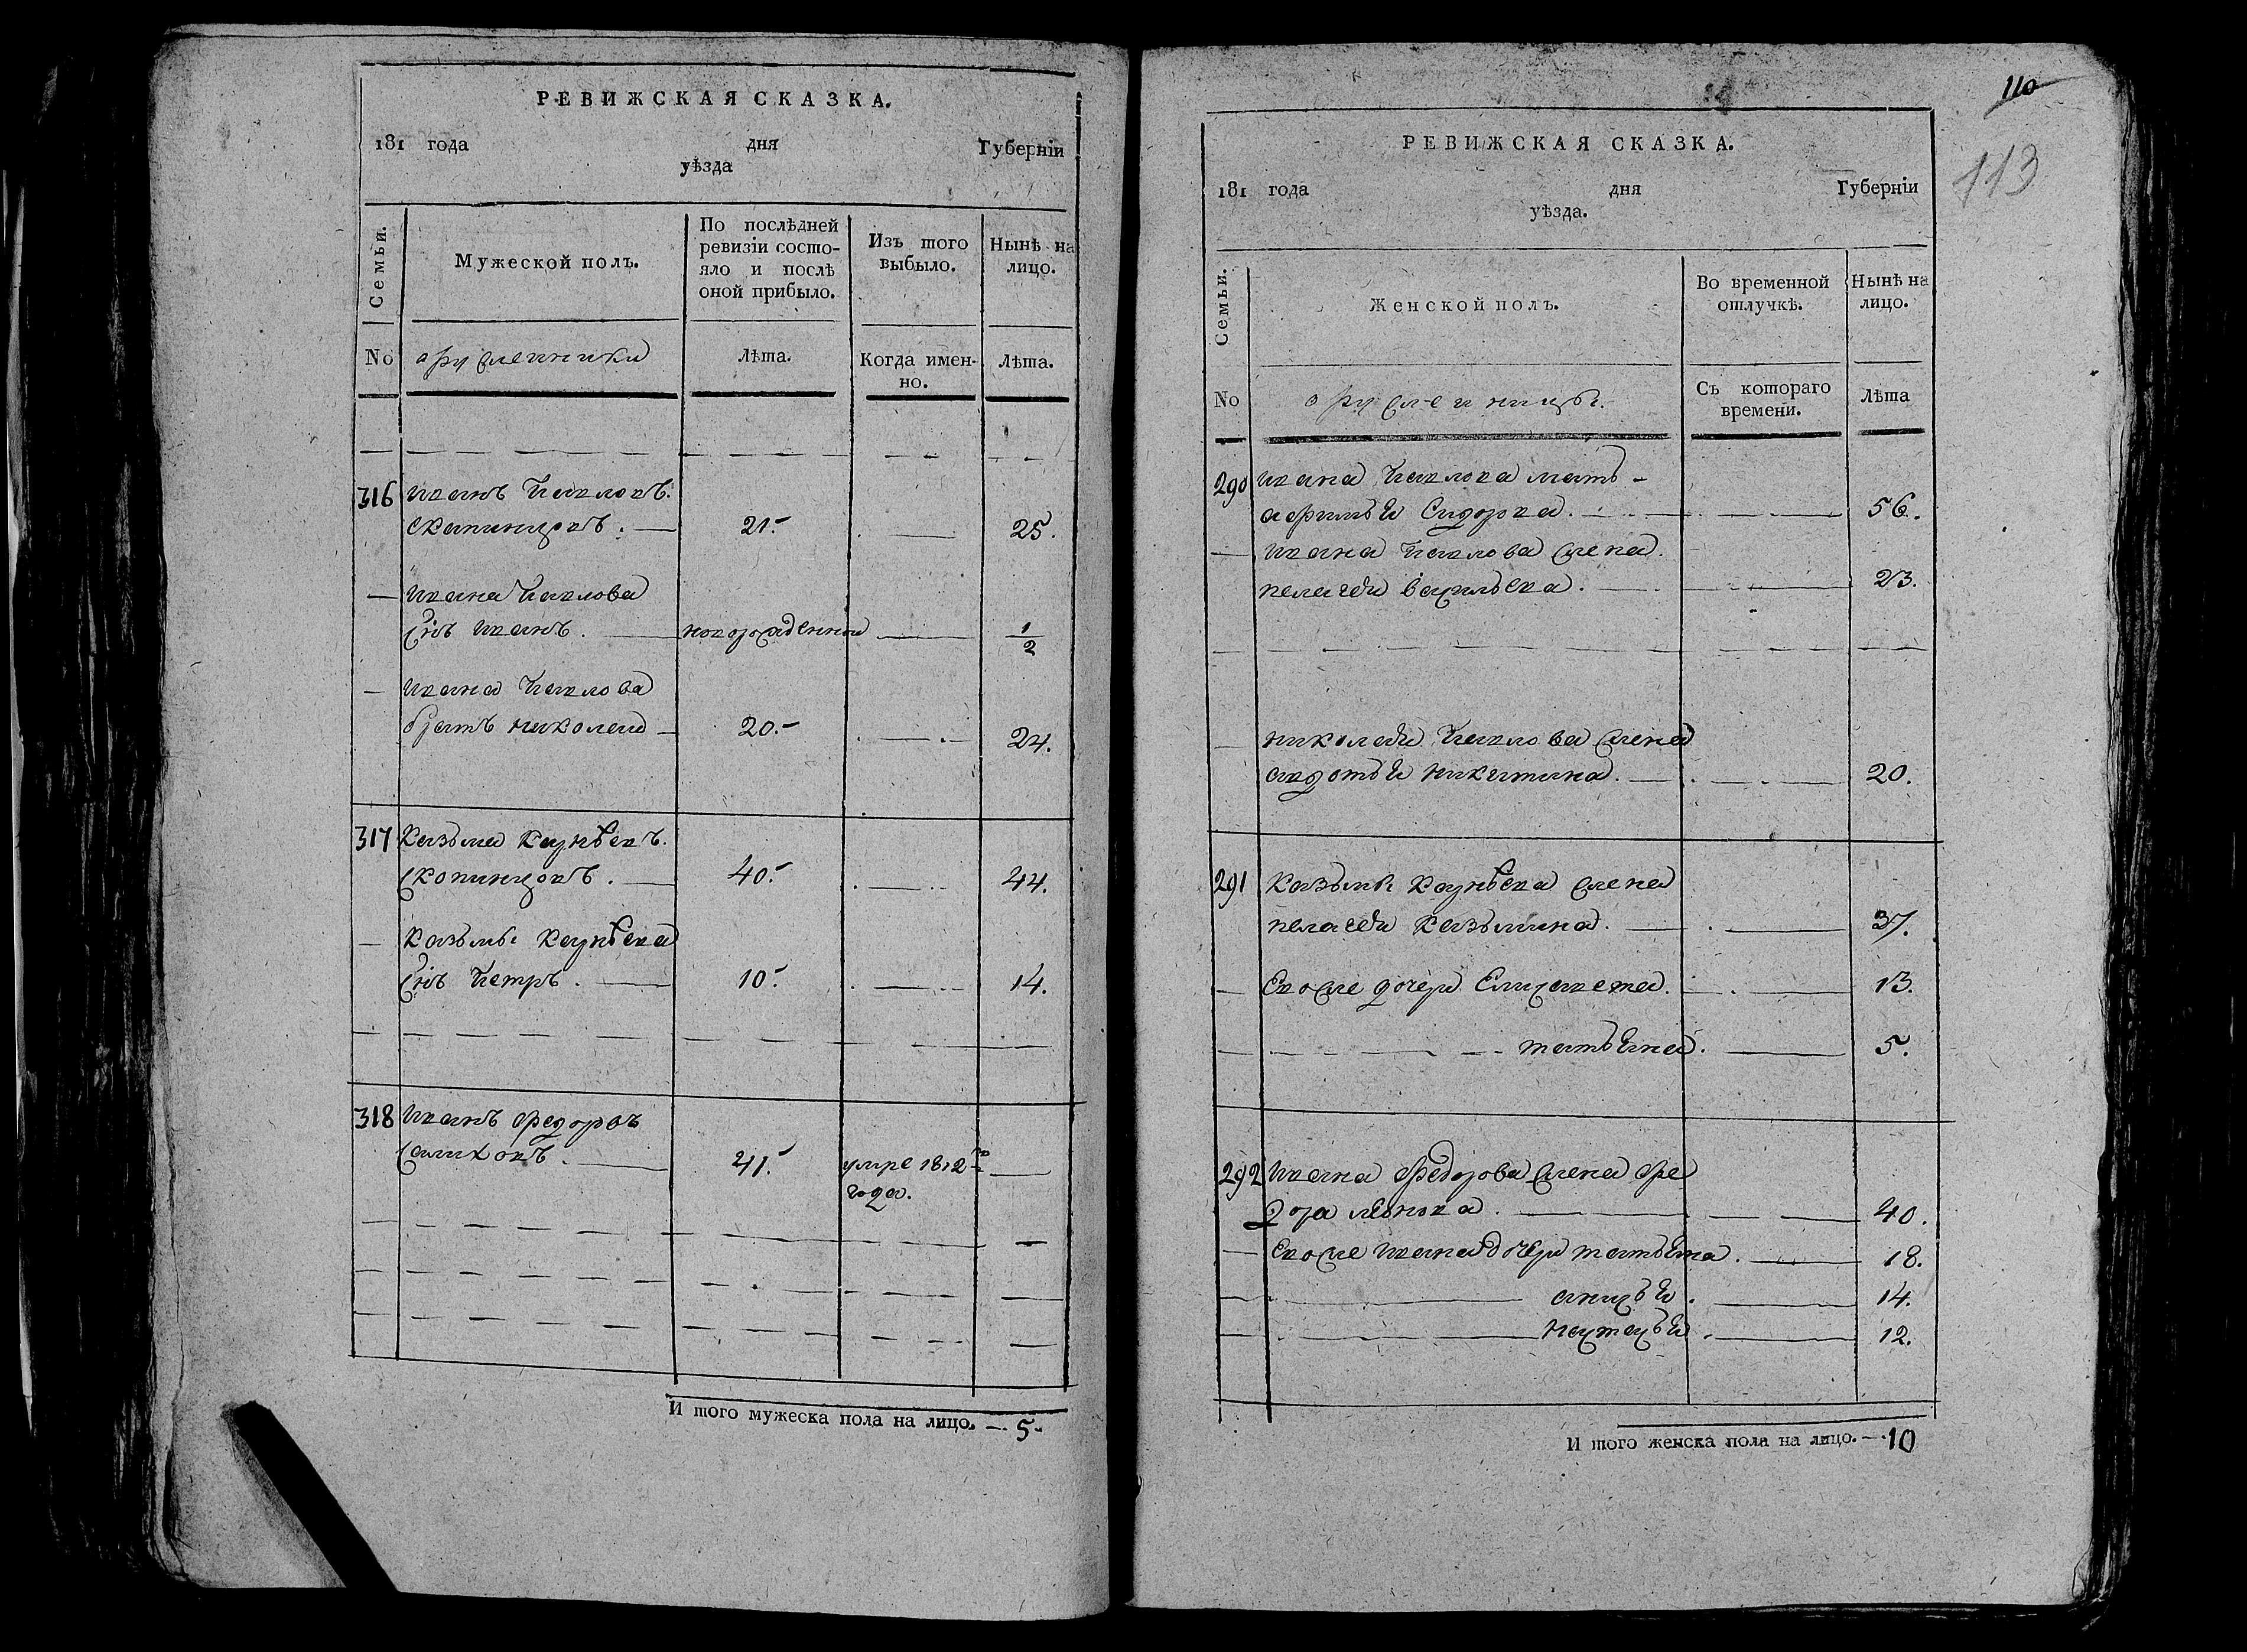 РЕВИЖСКАЯ СКАЗКА.
181 года дня Губерніи
уѣзда
Семьи.
Мужеской полъ.
По послѣдней ревизіи состо-
яло и послѣ
оной прибыло.
Изъ того
выбыло.
Нынѣ на
лицо.
No
Лѣта.
Когда имен-
но.
Лѣта.
316 Иванъ Павловъ.
21. 25.
Ивана Павлова
Снъ Иванъ. новорожденной 1/2
Ивана Павлова
братъ Николай 20. 24.
317 Казьма
40. 44.
Казьмы
Снъ Петръ. 10. 14.
318 Иванъ Федоровъ
41. умре 1812 го
года.
И того мужеска пола на лицо. 5
110
113
РЕВИЖСКАЯ СКАЗКА.
181 года дня Губерніи
уѣзда.
Семьи.
Женской полъ.
Во временной
отлучкѣ.
Нынѣ на
лицо.
No
Съ котораго
времени.
Лѣта
290 Ивана Павлова мать
Сидорова. 56.
Ивана Павлова жена
Пелагея Васильева. 23.
Николая Павлова жена
Авдотья Никитина. 20.
291 Казьмы жена
Пелагея Казьмина. 37.
Евоже дочери Елизавета. 13.
Татьяна. 5.
292 Ивана Федорова жена Фе
дора 40.
Евоже Ивана дочери Татьяна. 18.
14.
Настасья. 12.
И того женска пола на лицо. 10